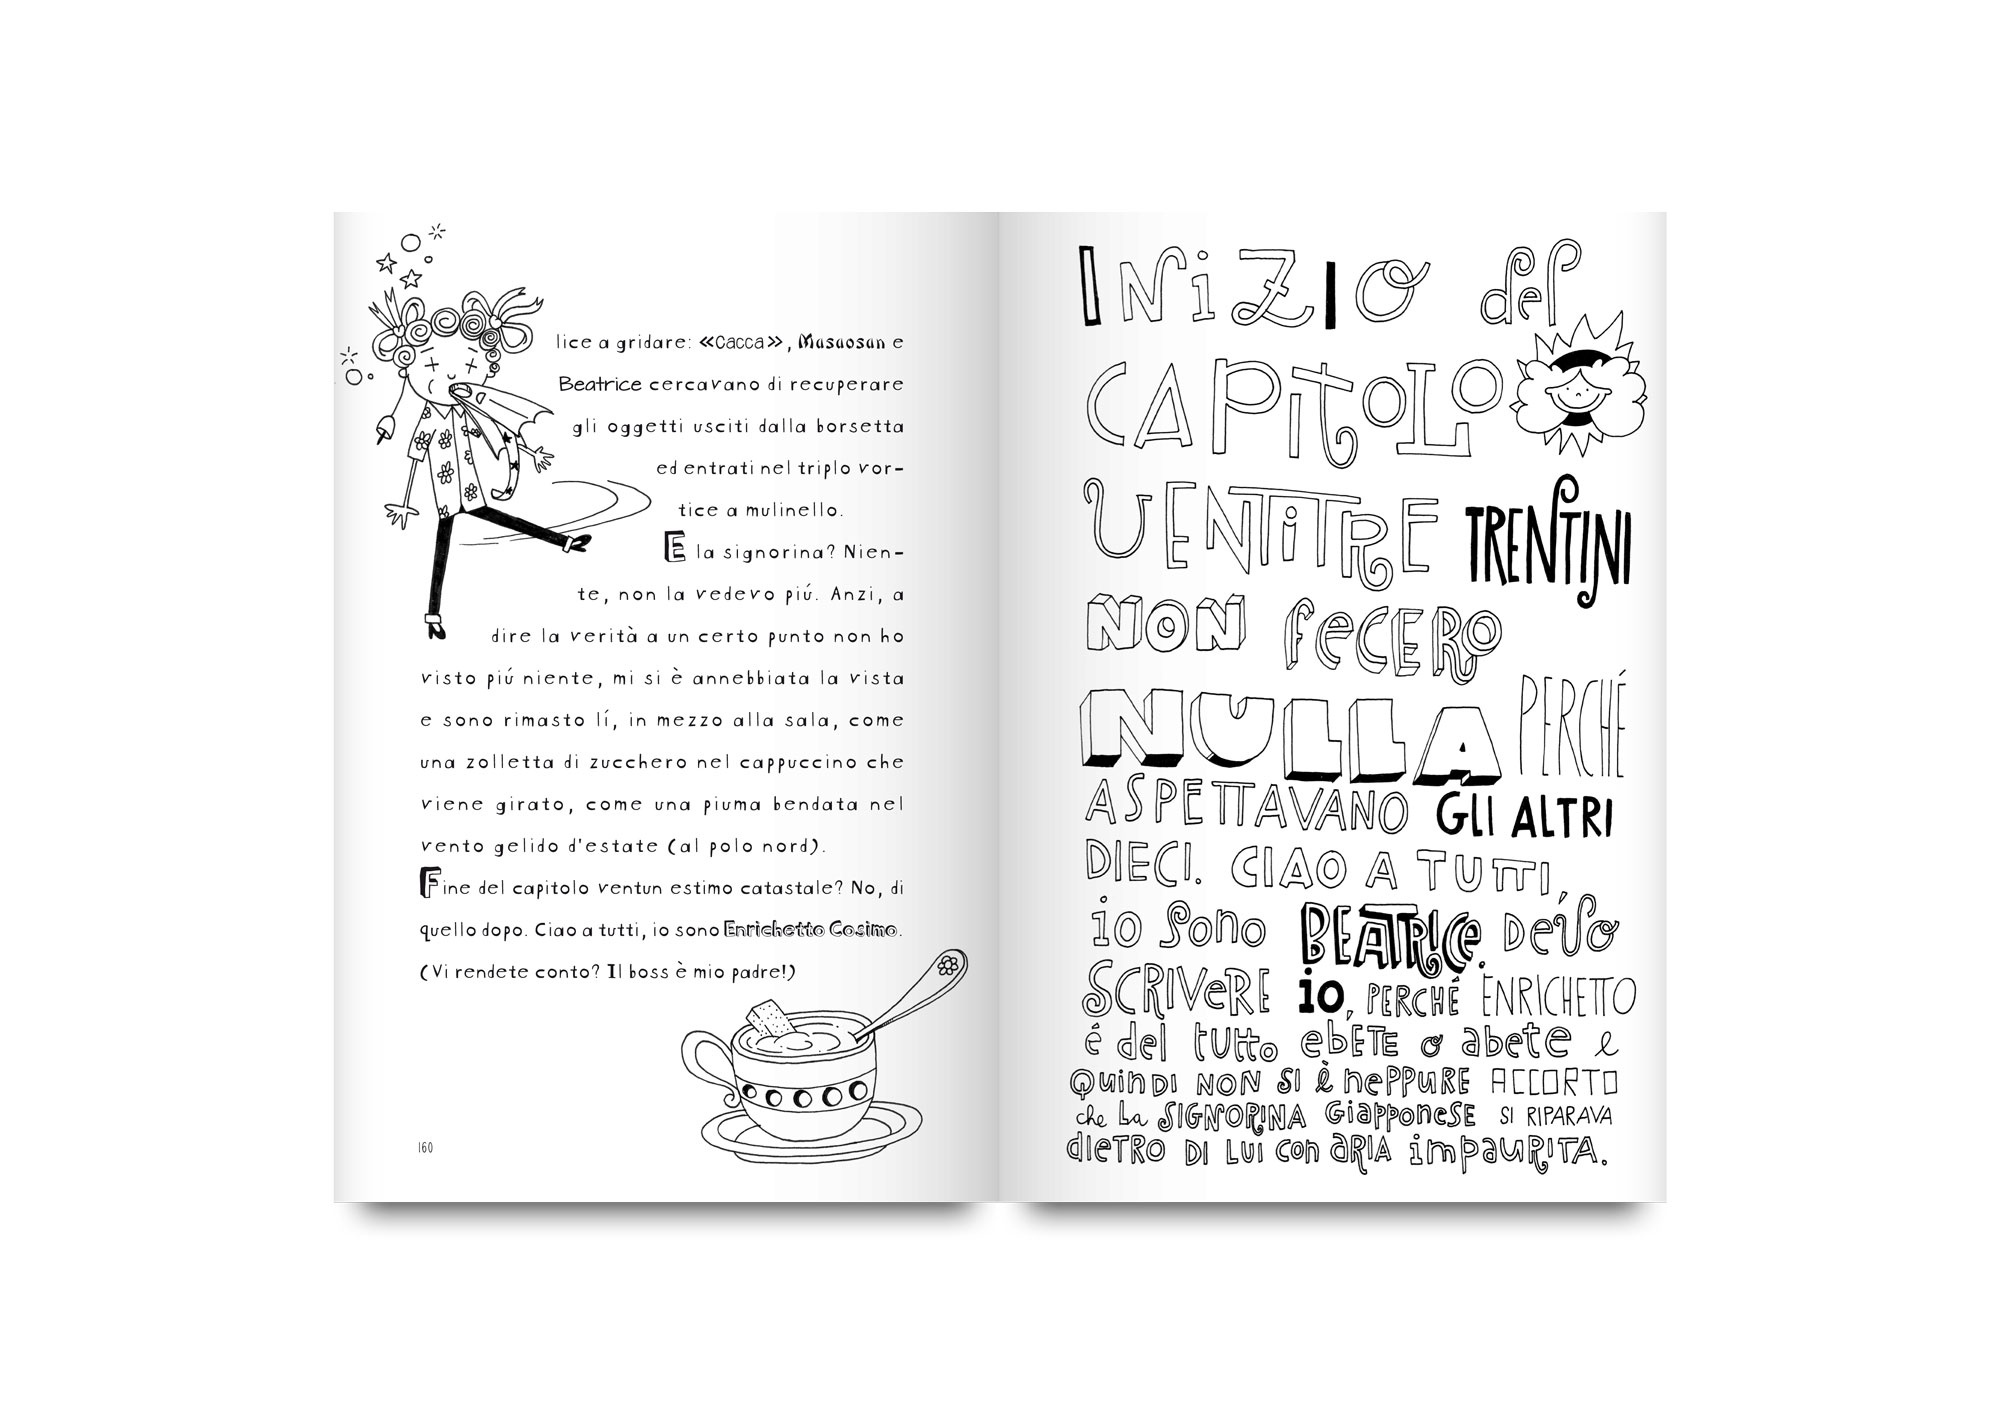 lice a gridare: «Cacca», Masaosan e
Beatrice cercavano di recuperare
gli oggetti usciti dalla borsetta
ed entrati nel triplo vor-
tice a mulinello.
E la signorina? Nien-
te, non la vedevo piú. Anzi, a
dire la verità a un certo punto non ho
visto piú niente, mi si è annebbiata la vista
e sono rimasto lí, in mezzo alla sala, come
una zolletta di zucchero nel cappuccino che
viene girato, come una piuma bendata nel
vento gelido d'estate (al polo nord).
Fine del capitolo ventun estimo catastale? No, di
quello dopo. Ciao a tutti, io sono Enrichetto Cosimo.
(Vi rendete conto? Il boss è mio padre!)
160
INiZIO del
CAPitOLO
VENTiTRE TRENTINI
NON FeCERO
NULLA PERCHÉ
ASPETTAVANO GLI ALTRI
DIECI. CIAO A TUTTI,
io Sono BEATRICE. DeVo
SCRIVeRE io, PERCHÉ ENRICHETTO
é del tutto ebETE o abete e
QuinDI NON SI è nePPURE ACCORTO
che La SIGNORINA GiapponeSE SI RIPARAVA
dIETRO DI LUI con aRIA impauRITA.